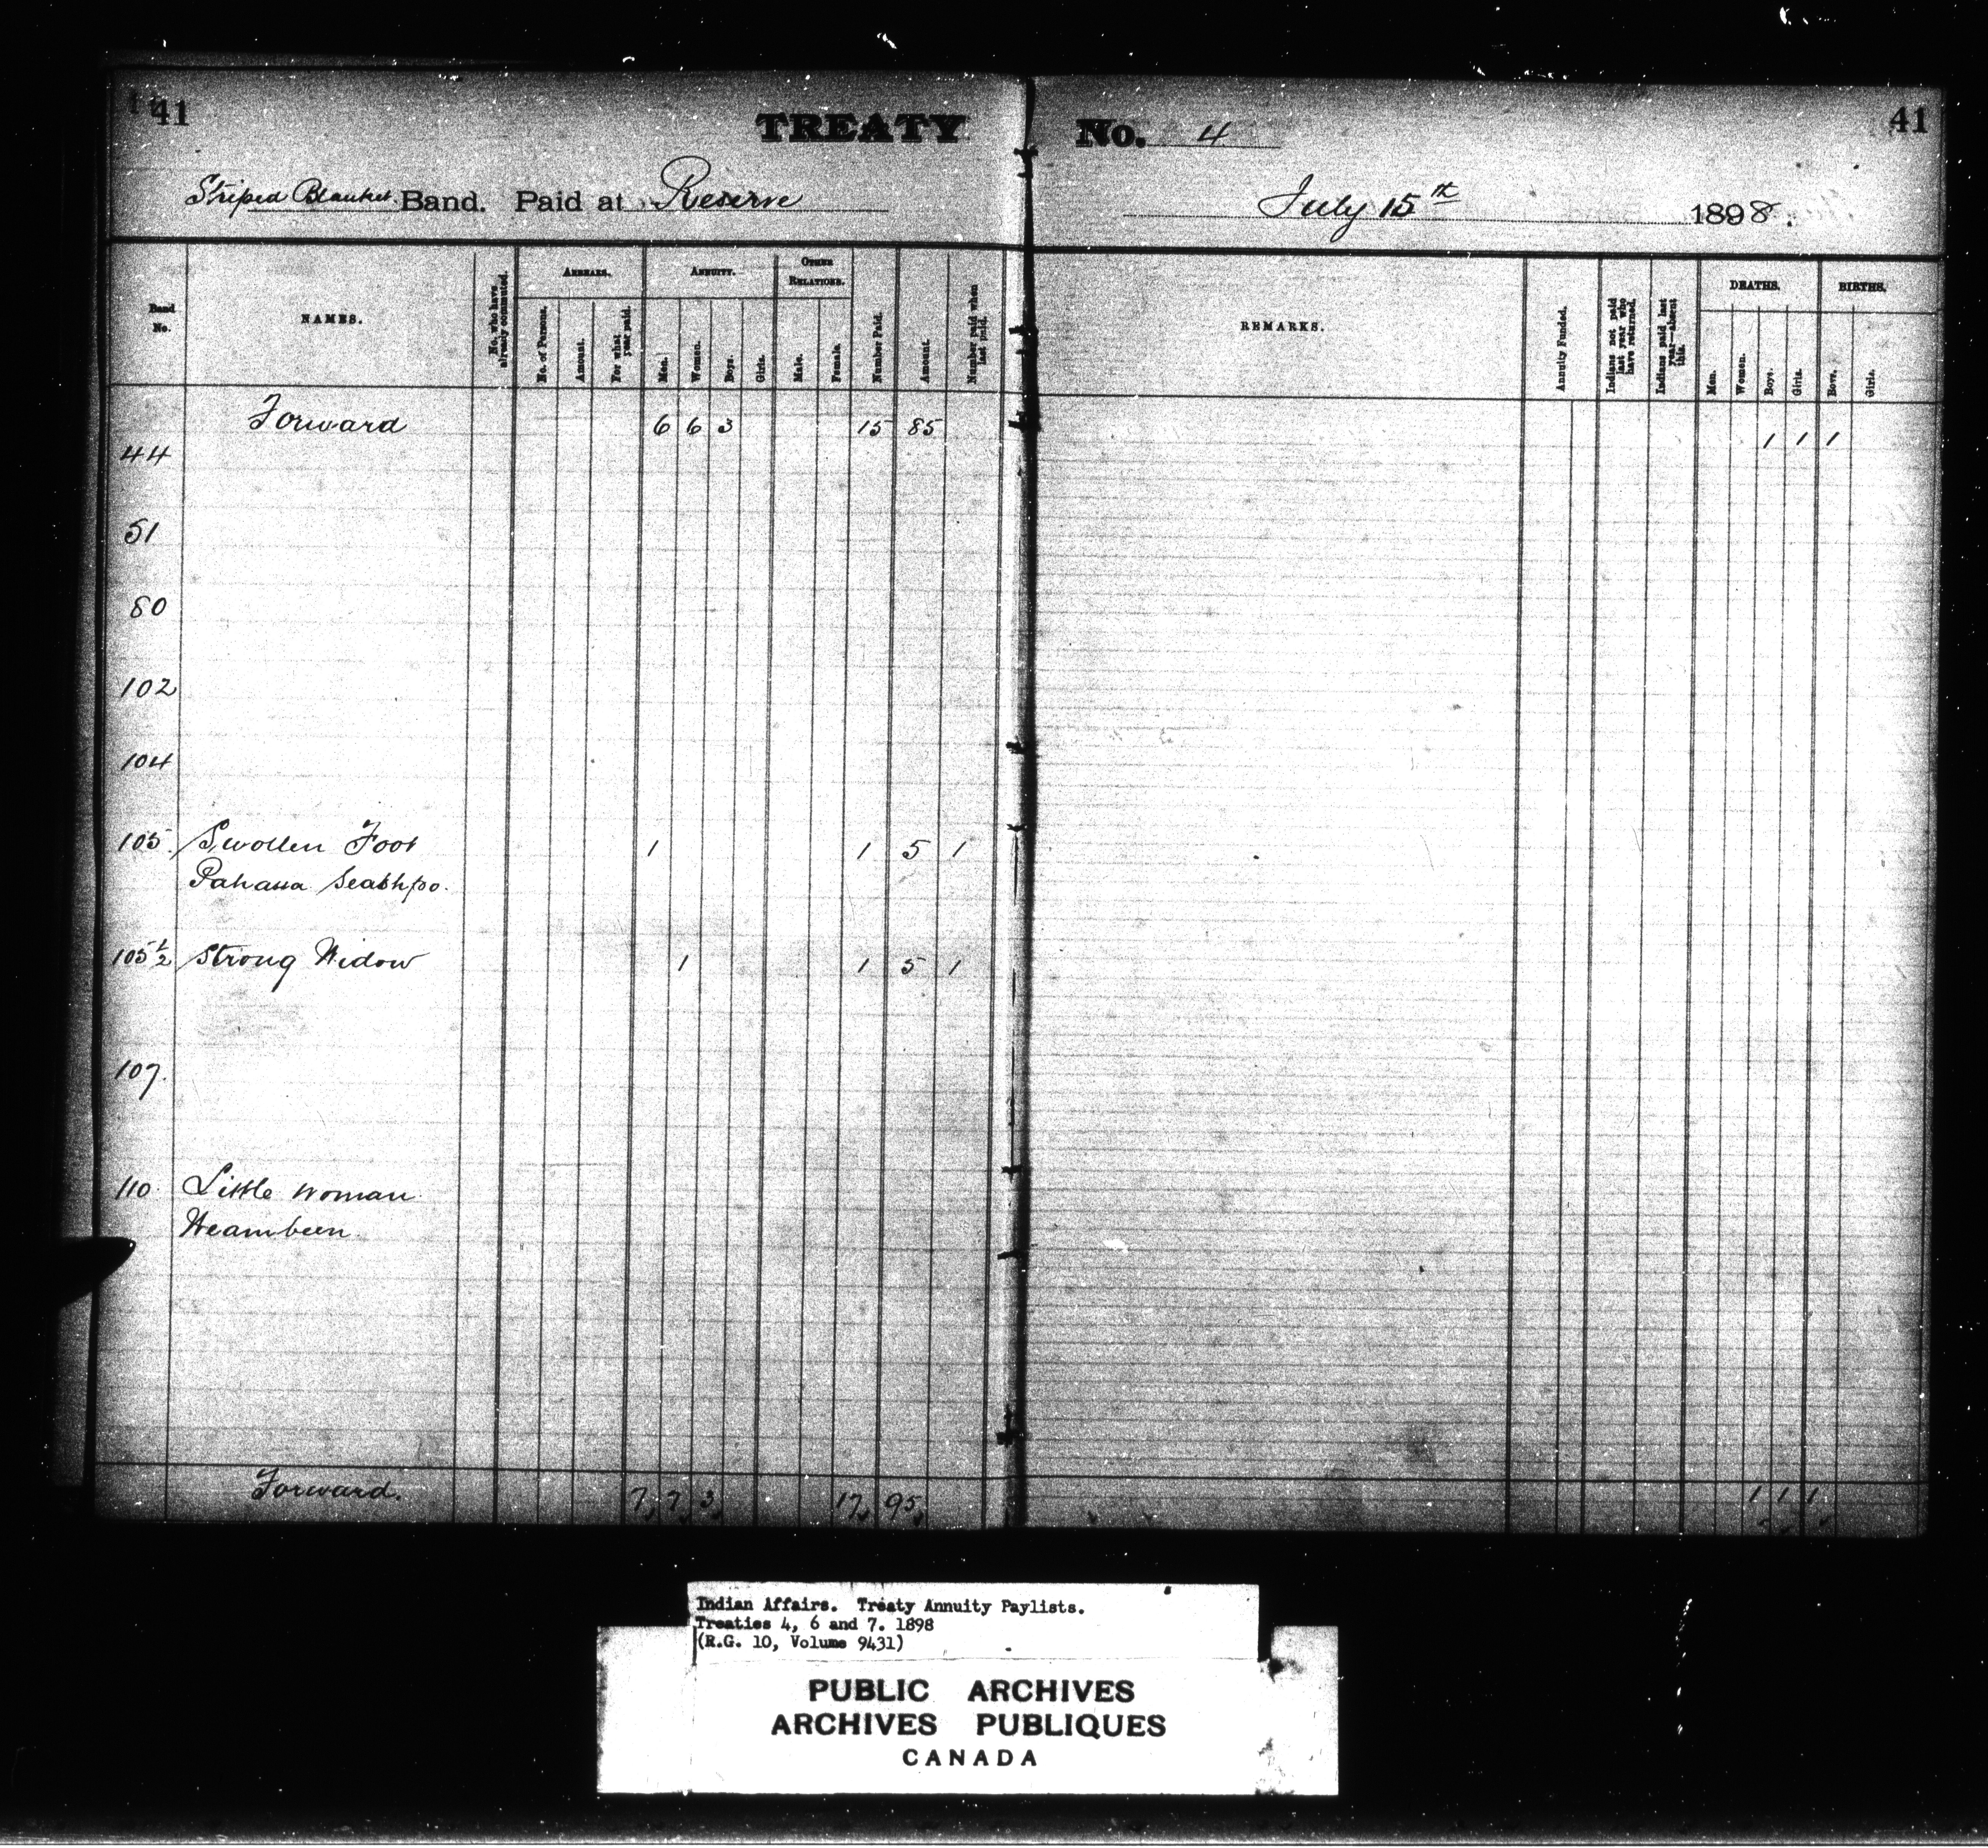 41 TREATY No. 4 41
Striped Blanket Band. Paid at Reserve July 15th 1898.
Band No. NAMES. No. who have already commuted. ARREARS. No. of Persons. Amount. For what year paid. ANNUITY. Men. Women. Boys. Girls. OTHER RELATIONS. Male. Female. Number Paid. Amount. Number paid when last paid. REMARKS. Annuity Funded. Indians not paid last year who have returned. Indians paid last year—absent this. DEATHS. Men. Women. Boys. Girls. BIRTHS. Boys. Girls.
Forward 6 6 3 15 85 1 1 1
44
51
80
102
104
105 Swollen Foot 1 1 5 1
Pahaua Seashpo.
105½ Strong Widow 1 1 5 1
107.
110. Little Woman
Weambeen
Forward. 7 7 3 17 95 1 1 1
Indian Affairs. Treaty Annuity Paylists.
Treaties 4, 6 and 7. 1898
(R.G. 10, Volume 9431)
PUBLIC ARCHIVES
ARCHIVES PUBLIQUES
CANADA